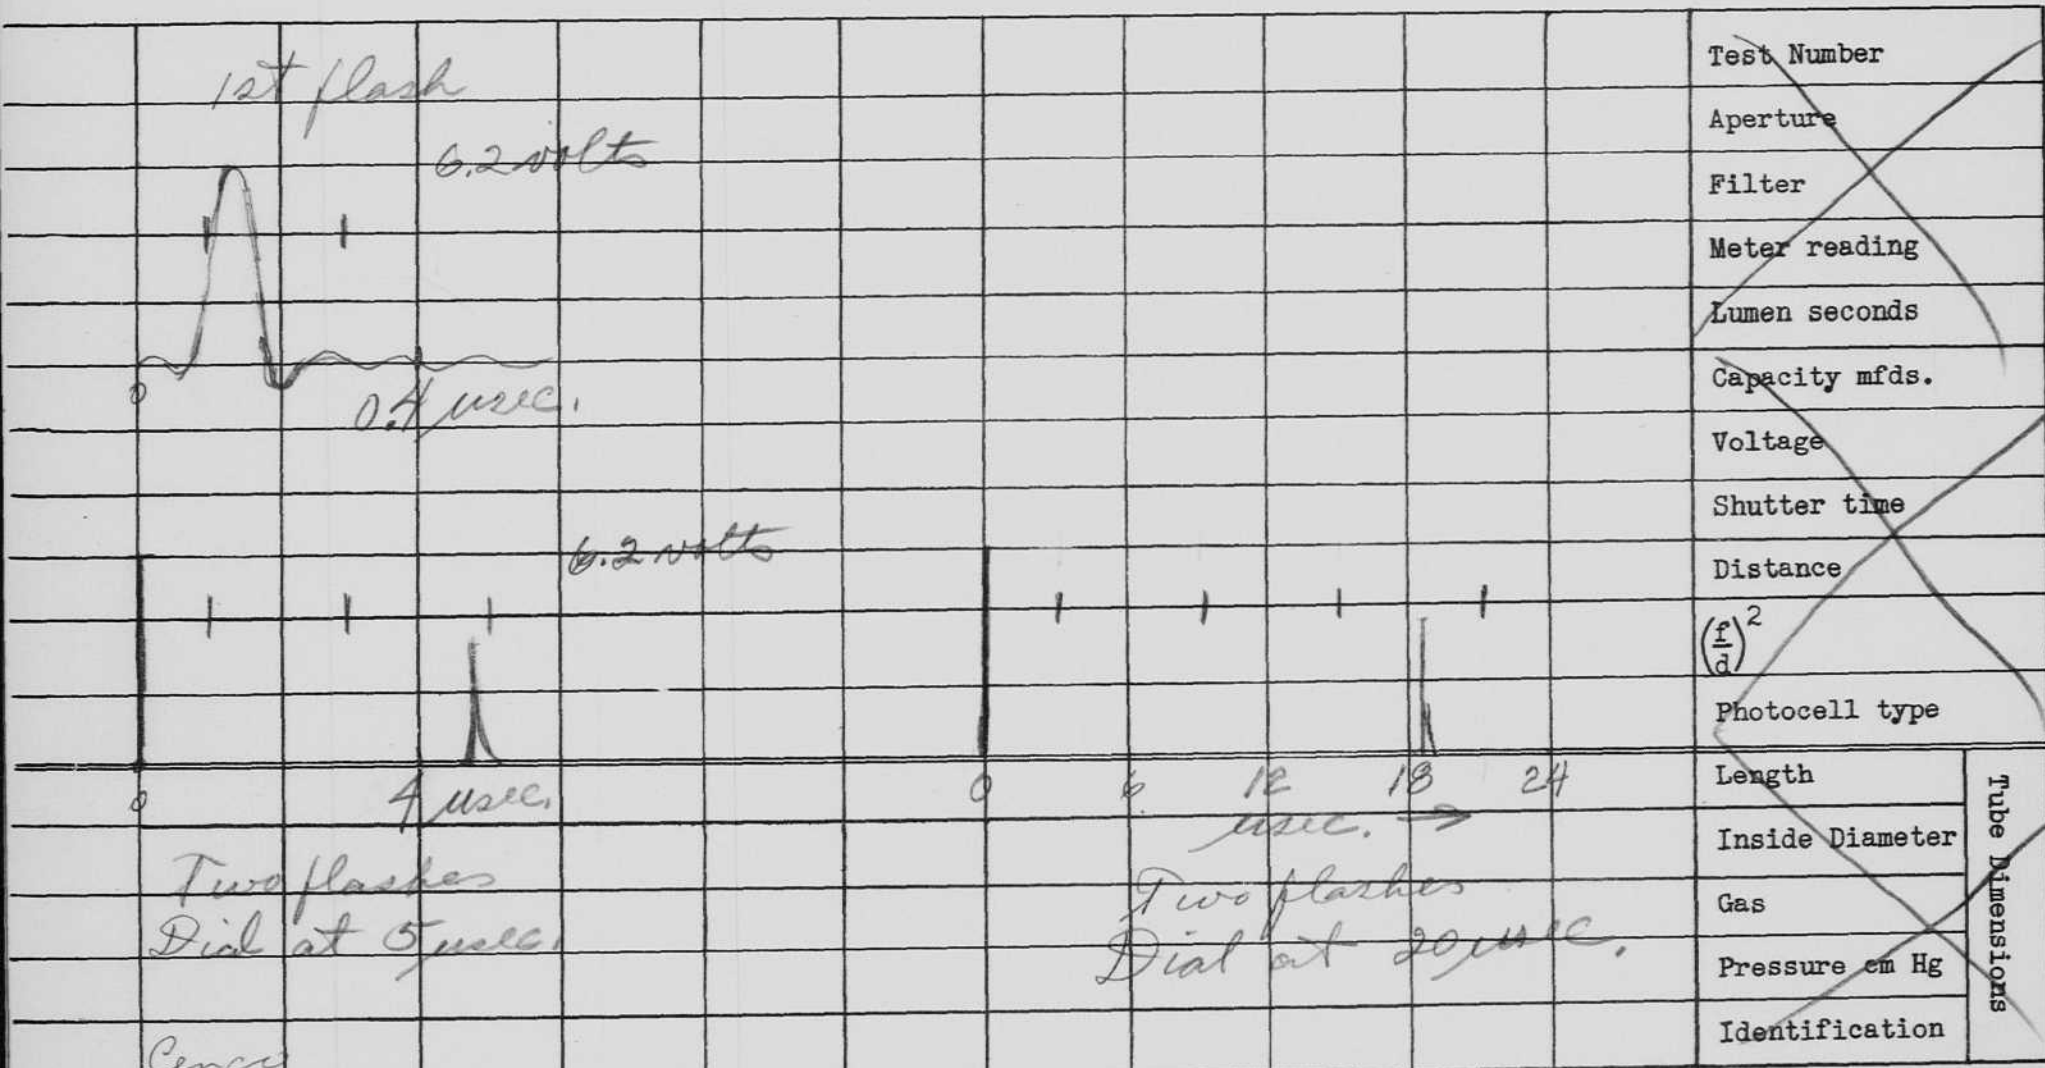 1st flash
6.2 volts
0
0.4 µsec.
6.2 volts
0
4 µsec.
0 6 12 18 24
µsec. →
Two flashes
Dial at 5 µsec.
Two flashes
Dial at 20 µsec.
Cenco
Test Number
Aperture
Filter
Meter reading
Lumen seconds
Capacity mfds.
Voltage
Shutter time
Distance
(f/d)²
Photocell type
Length
Inside Diameter
Gas
Pressure cm Hg
Identification
Tube Dimensions